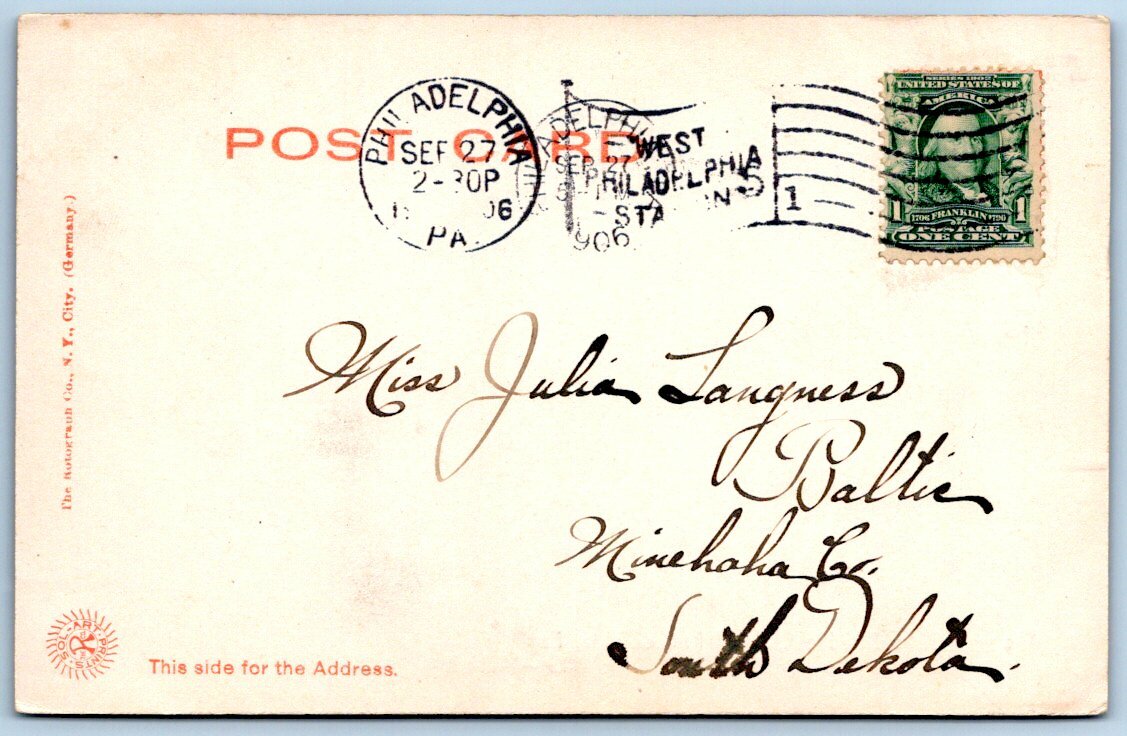 POST CARD
PHILADELPHIA
SEP 27
2-30P
06
PA.
PHILADELPHIA
SEP 27
906
WEST
PHILADELPHIA
STA
1
SERIES 1902
UNITED STATES OF
AMERICA
1 1706 FRANKLIN 1790 1
POSTAGE
ONE CENT
Miss Julia Langness
Baltic
Minehaha Co.
South Dekota.
The Rotograph Co., N. Y., City. (Germany.)
SOL-ART-PRINTS
This side for the Address.